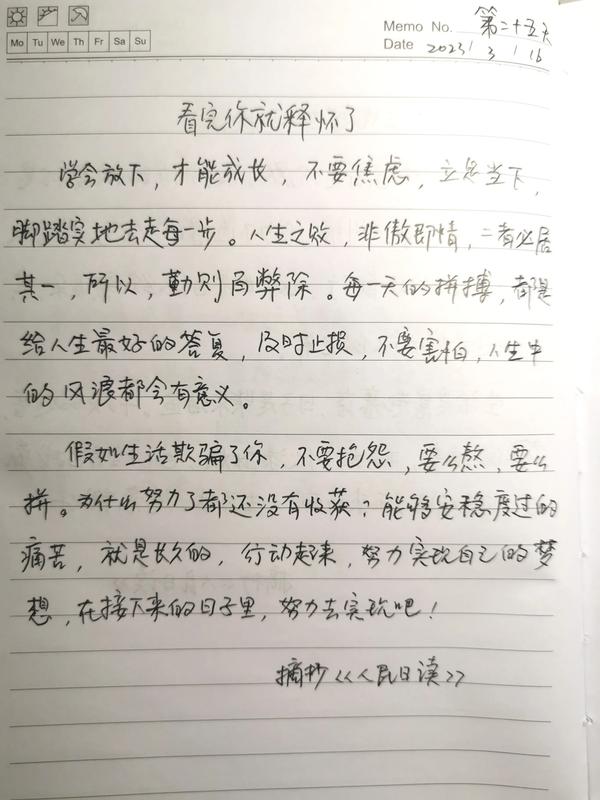 Memo No. 第二十五天
Mo Tu We Th Fr Sa Su
Date 2023 / 3 / 16
看完你就释怀了
学会放下，才能成长，不要焦虑，立足当下，
脚踏实地去走每一步。人生之败，非傲即惰，二者必居
其一，所以，勤则百弊除。每一天的拼搏，都是
给人生最好的答复，及时止损，不要害怕，人生中
的风浪都会有意义。
假如生活欺骗了你，不要抱怨，要么熬，要么
拼。为什么努力了都还没有收获？能够安稳度过的
痛苦，就是长久的，行动起来，努力实现自己的梦
想，在接下来的日子里，努力去实现吧！
摘抄<<人民日读>>